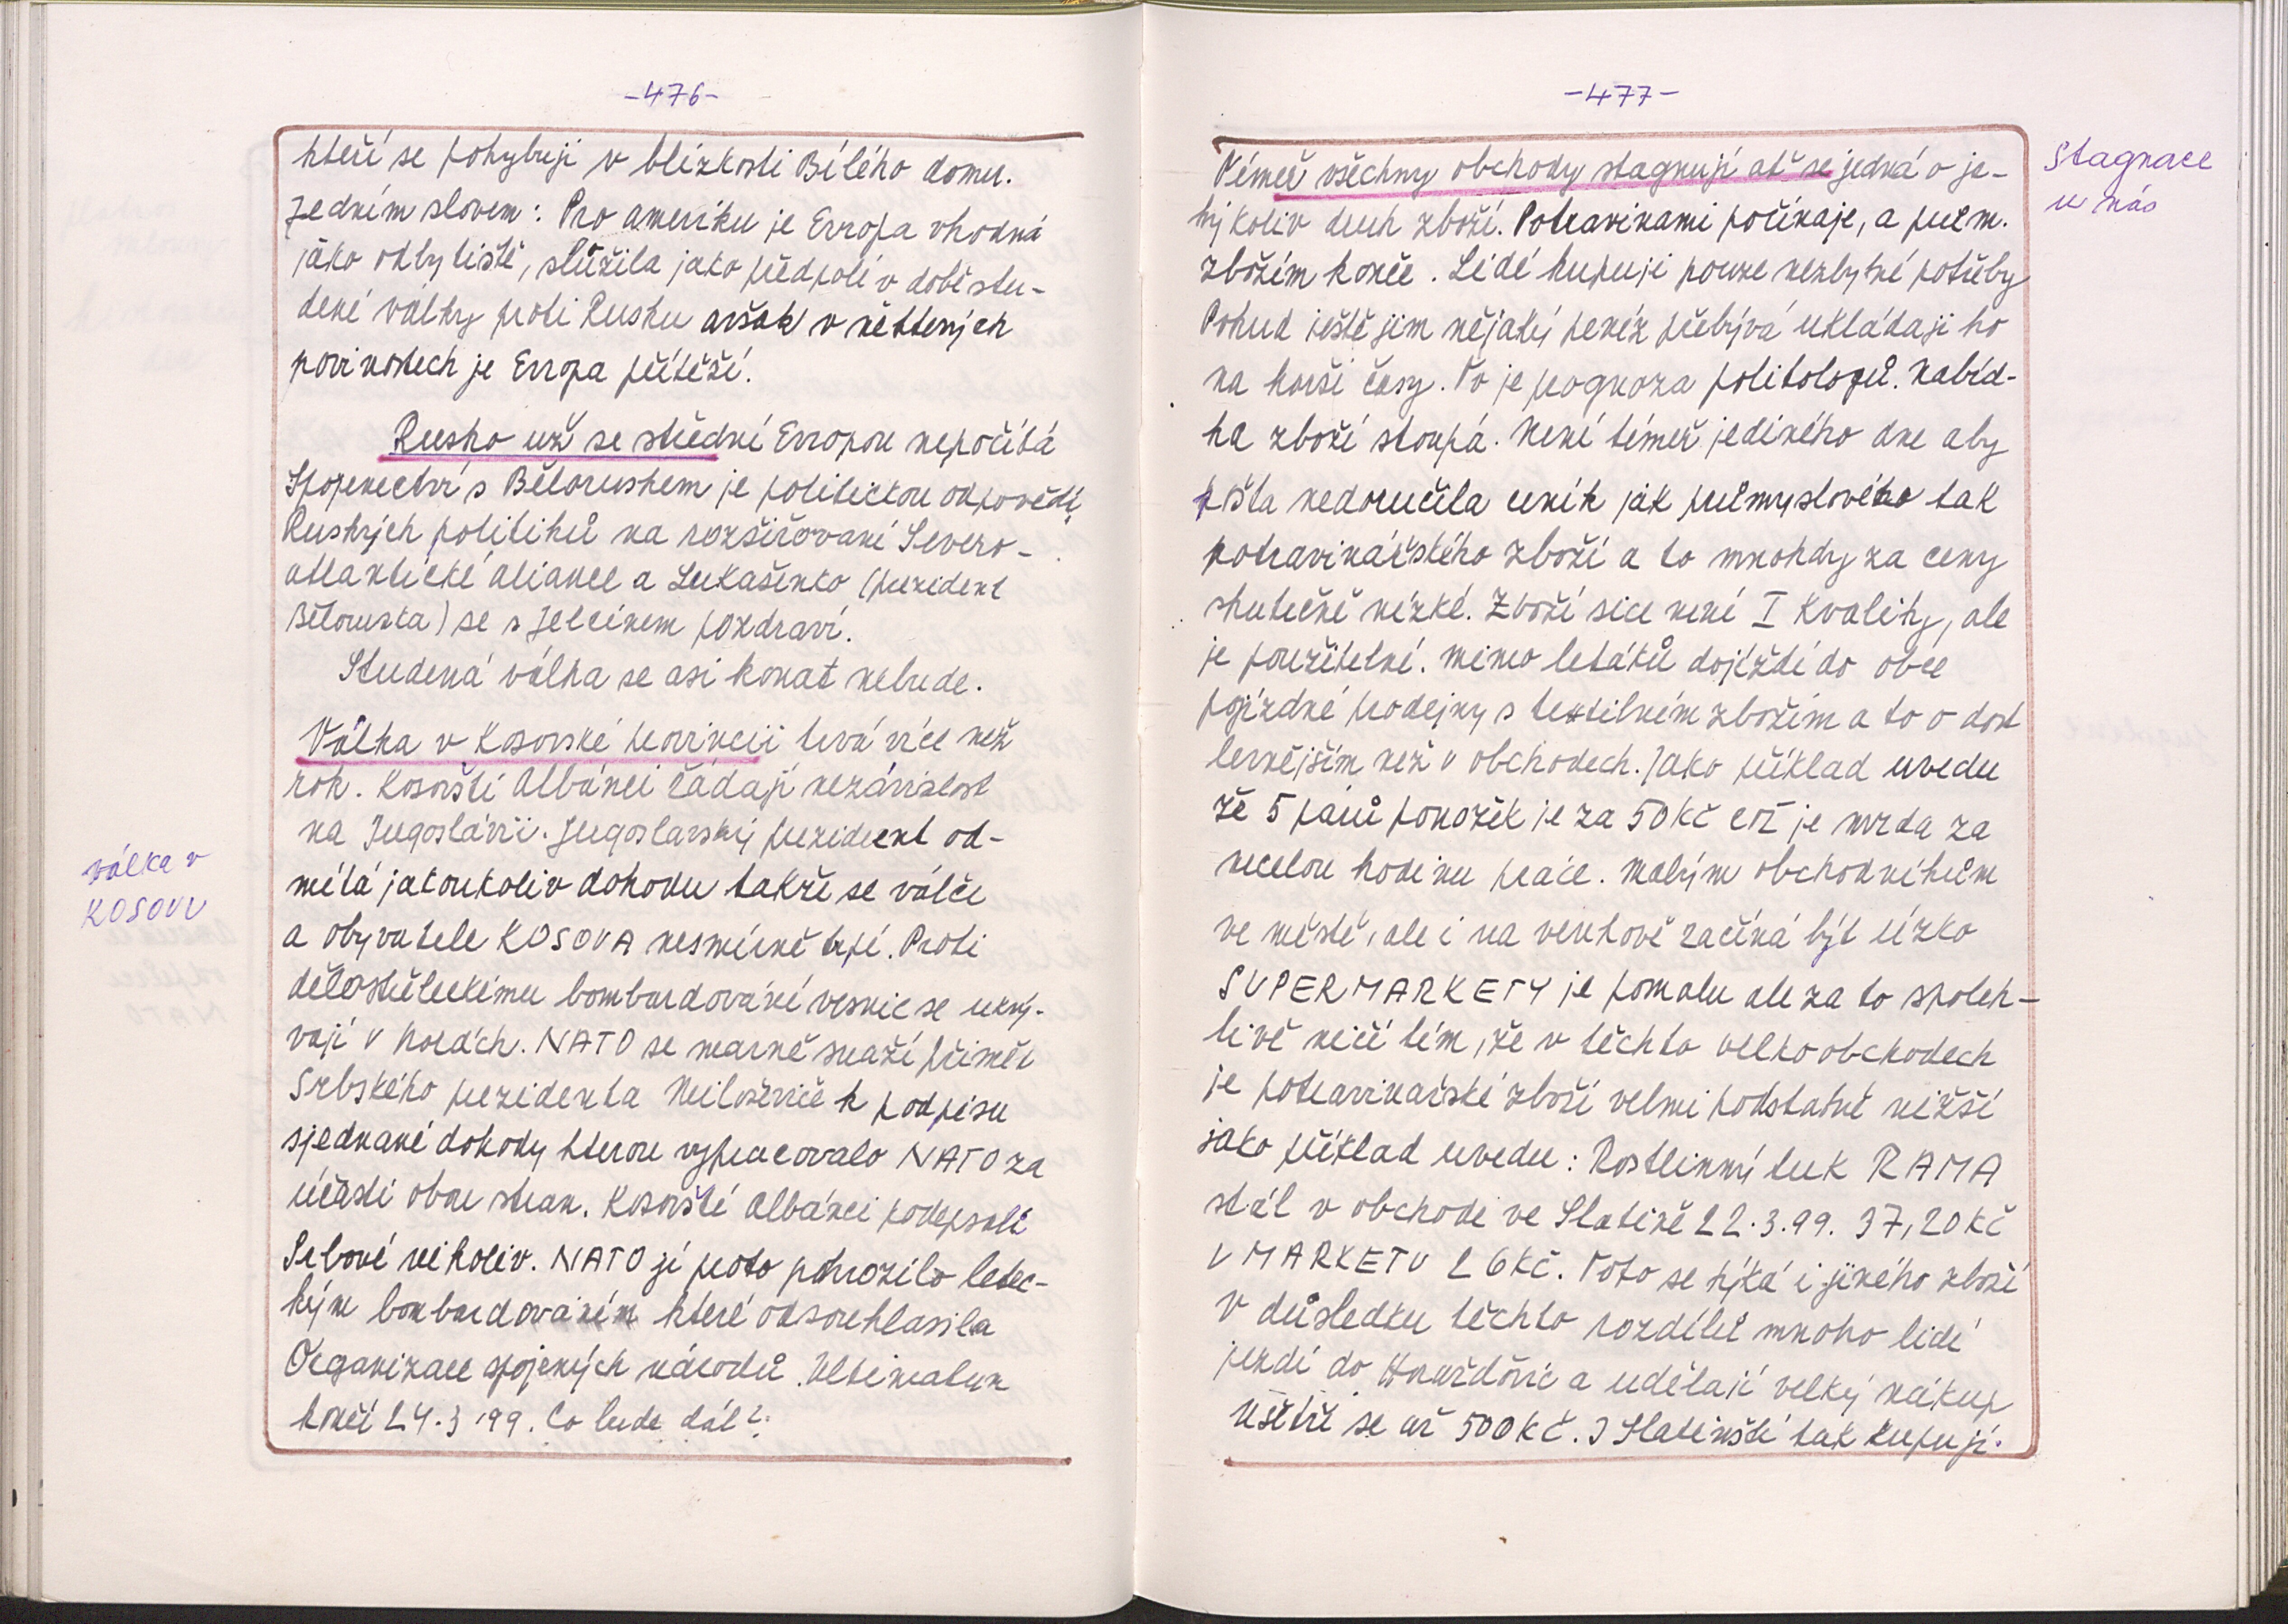 -476-
kteří se pohybují v blízkosti Bílého domu.
Jedním slovem: Pro ameriku je Evropa vhodná
jáko odbytiště, slůžila jako předpolí v době stu-
dené války proti Rusku avšak v některých
povinostech je Evropa přítěží.
Rusko už se střední Evropou nepočítá
Spojenectví s Běloruskem je politickou odpovědí
Ruských politiků na rozšiřovaní Severo-
atlantické aliance a Lukašenko (prezident
Běloruska) se s Jelcinem pozdraví.
Studená válka se asi konat nebude.
Válka v Kosovské provincii trvá více než
rok. Kosovští Albánci žádají nezávislost
na Jugoslávii. Jugoslavský prezident od-
mítá jakoukoliv dohodu takže se válčí
a obyvatele KOSOVA nesmírně trpí. Proti
dělostřeleckému bombardování vesnic se ukrý-
vají v horách. NATO se marně snaží přimět
Srbského prezidenta Miloševiče k podpisu
sjednané dohody kterou vypracovalo NATO za
účasti obou stran. Kosovští Albánci podepsali
Srbové nikoliv. NATO jí proto pohrozilo letec-
kým bombardováním které odsouhlasila
Organizace spojených národů. Ultimatum
končí 24.3.99. Co bude dál?
válka v
KOSOVU
-477-
Témeř všechny obchody stagnují ať se jedná o ja-
kýkoliv druh zboží. Potravinami počínaje, a prům.
zbožím konče. Lidé kupují pouze nezbytné potřeby
Pokud ještě jim nějaký peníz přebývá ukládaji ho
na horší časy. To je prognoza politologů. Nabíd-
ka zboží stoupá. Není témeř jediného dne aby
pošta nedoručila ceník jak průmyslového tak
potravinářského zboží a to mnohdy za ceny
skutečně nízké. Zboží sice není I kvality, ale
je použitelné. mimo letáků dojíždí do obce
pojízdné prodejny s textilním zbožím a to o dost
levnějším než v obchodech. Jako příklad uvedu
že 5 párů ponožek je za 50 Kč což je mzda za
necelou hodinu práce. Malým obchodníkům
ve městě, ale i na venkově začíná být úzko
SUPERMARKETY je pomalu ale za to spoleh-
livě ničí tím, že v těchto velkoobchodech
je potravinařské zboží velmi podstatně nižší
jako příklad uvedu: Rostlinný tuk RAMA
stál v obchodě ve Slatině 22.3.99. 37,20 Kč
V MARKETU 26 Kč. Toto se týká i jiného zboží
V důsledku těchto rozdílů mnoho lidí
jezdí do Horažďovic a udělají velký nákup
Ušetří se až 500 Kč. I Slatinští tak kupují.
Stagnace
u nás